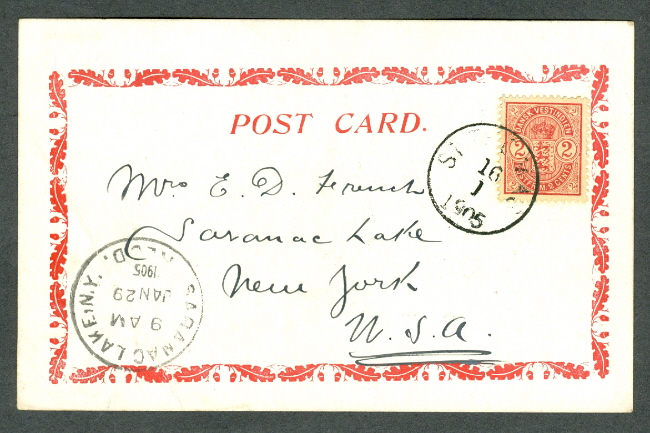 POST CARD.
DANSK VESTINDIEN
2 2
16
1
1905
Mrs E. D. French
Saranac Lake
New York
U. S. A.
SARANAC LAKE, N.Y.
9 AM
JAN 29
1905
REC'D.